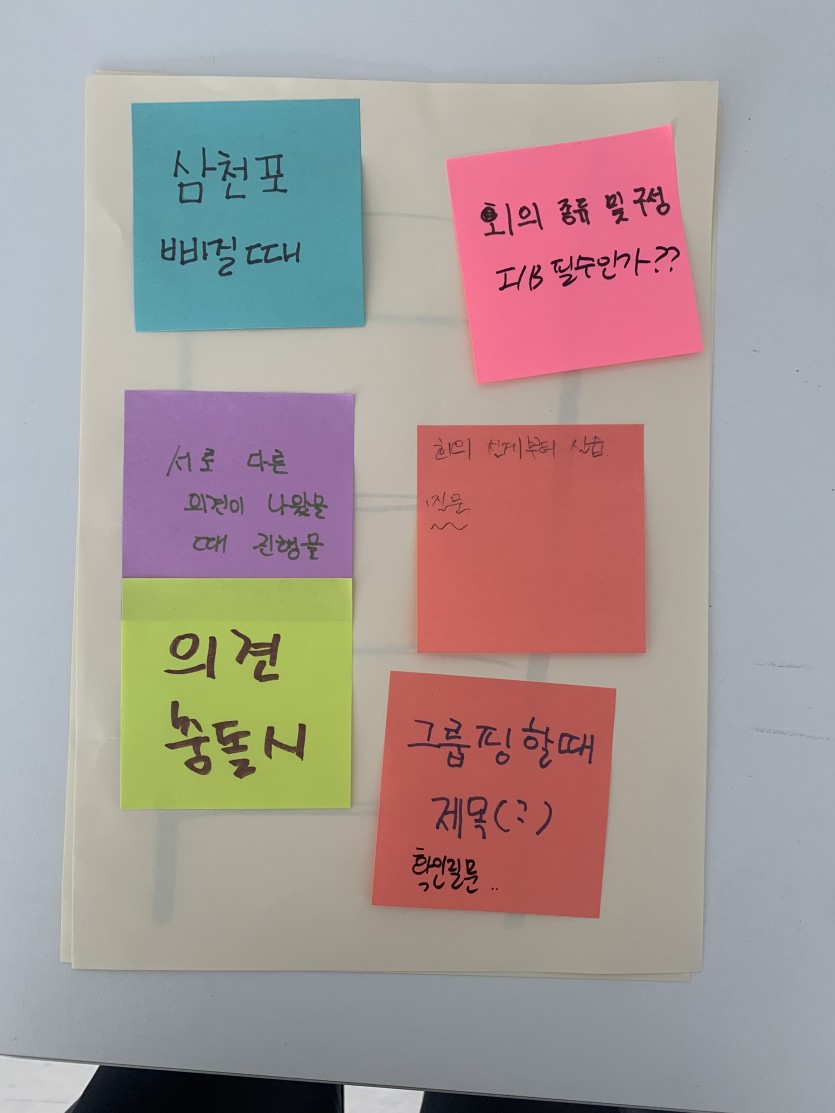 삼천포
삐질때
회의 종류 및 구성
I/B 필수인가??
서로 다른
의견이 나왔을
때 진행을
회의 설계부터 실습.
질문
의견
충돌시
그룹핑할때
제목(:)
확인질문..